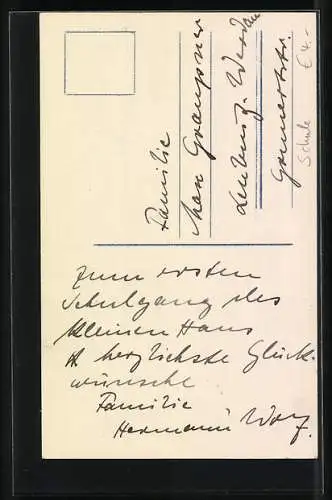 Familie
Max Grampner
Leubnitz-Werdau
Grunertstr.
Schule € 4.-
Zum ersten
Schulgang des
kleinen Hans
herzlichste Glück-
wünsche
Familie
Hermann